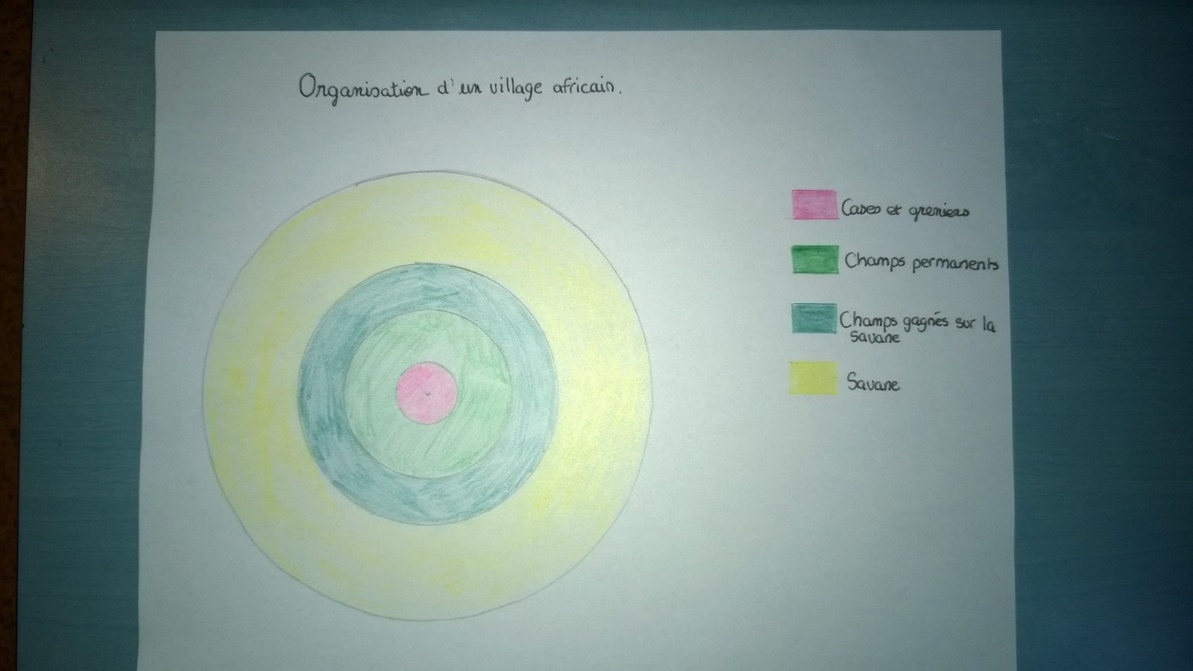 Organisation d'un village africain.
Cases et greniers
Champs permanents
Champs gagnés sur la
savane
Savane